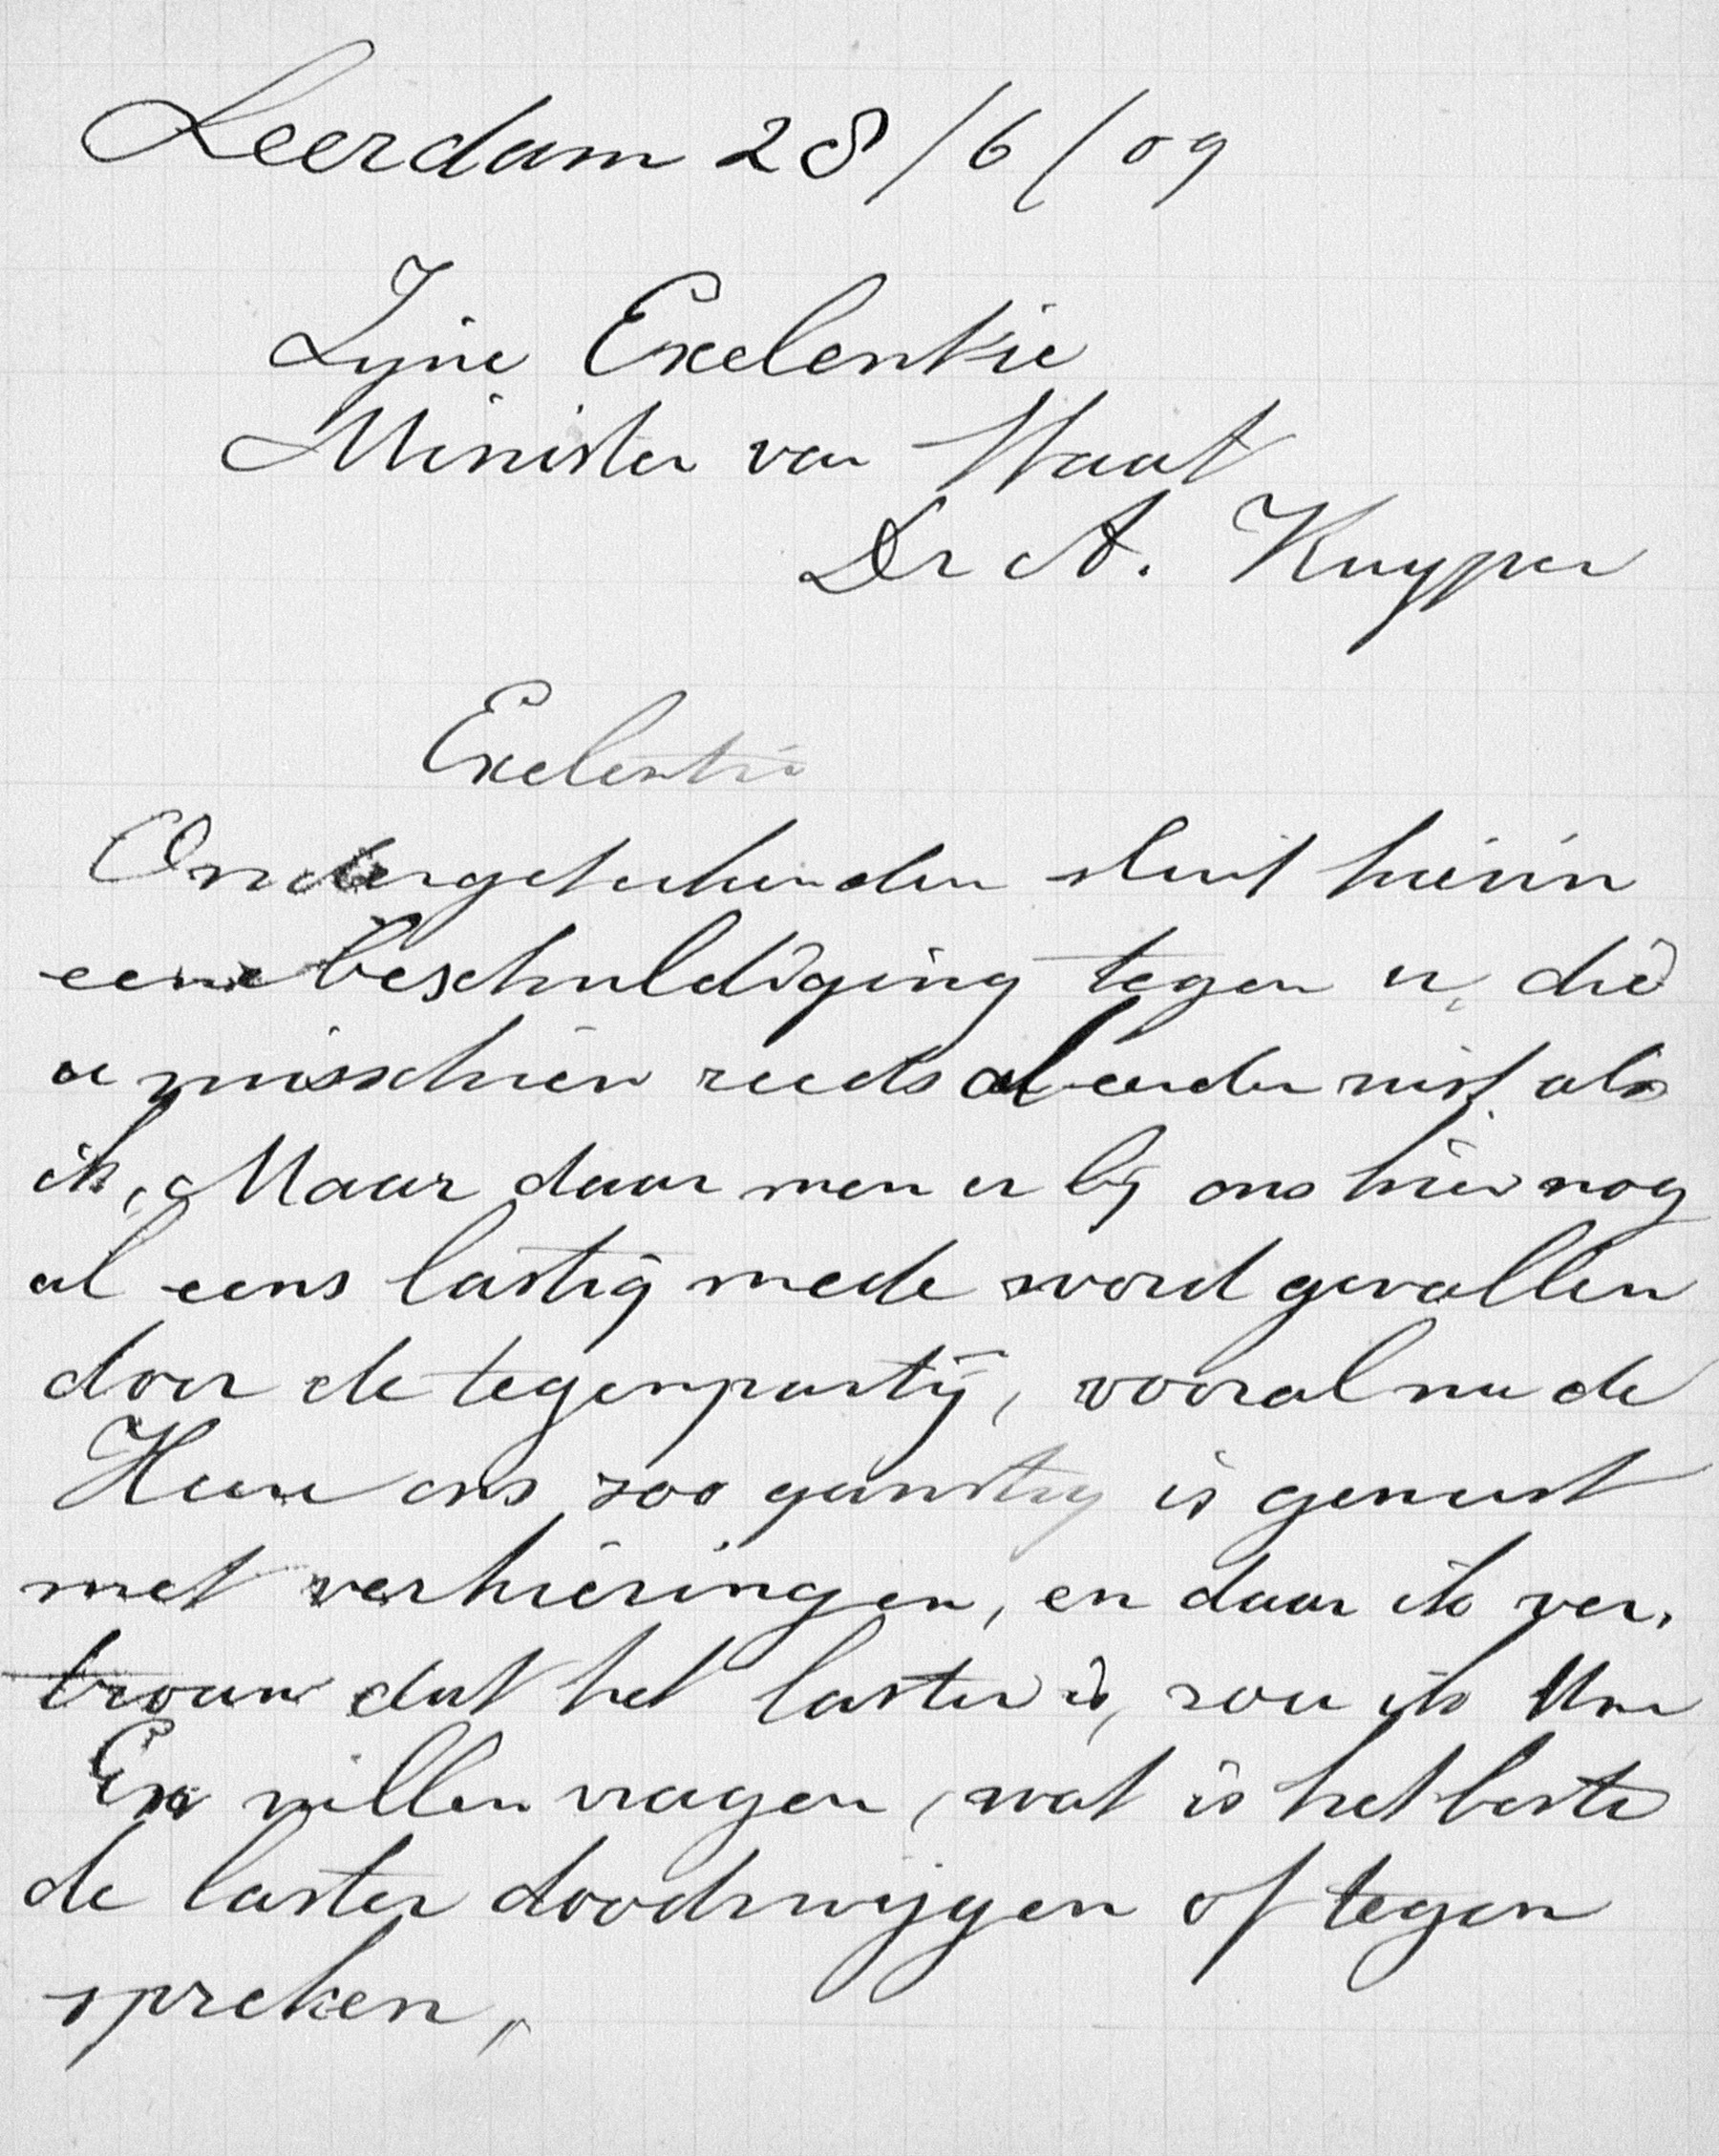 Leerdam 28/6/09
Zyne Exelentie
Minister van Staat
Dr A. Kuyper
Exelentie
Ondergetekenden sluit hierin
eene beschuldiging tegen u, die
u misschien reeds al eerder wist als
ik, Maar daar men er bij ons hier nog
al eens lastig mede word gevallen
door de tegenpartij, vooral nu de
Heere ons zoo gunstig is geweest
met verkieringen, en daar ik ver,
trouw dat het laster is, zou ik Uw
Ex willen vragen, wat is het beste
de laster doodswijgen of tegen
spreken,